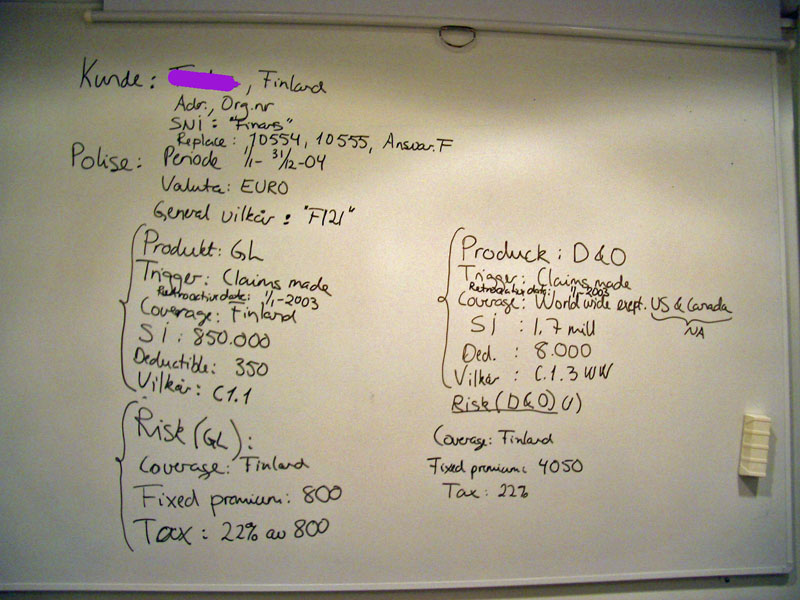 Kunde: , Finland
Adr., Org.nr
SNi = "Finans"
Replace: 10554, 10555, Ansvar.F
Polise: Periode 1/1- 31/12-04
Valuta: EURO
General vilkår: "F121"
Produkt: GL
Trigger: Claims made
Retroactive date: 1/1-2003
Coverage: Finland
Si: 850.000
Deductible: 350
Vilkår: C1.1
Risk (GL):
Coverage: Finland
Fixed premium: 800
Tax: 22% av 800
Produck: D&O
Trigger: Claims made
Retroactive date: 1/1-2003
Coverage: World wide exept. US & Canada
NA
Si : 1,7 mill
Ded. : 8.000
Vilkår : C.1.3 WW
Risk (D&O) (1)
Coverage: Finland
Fixed premium: 4050
Tax: 22%